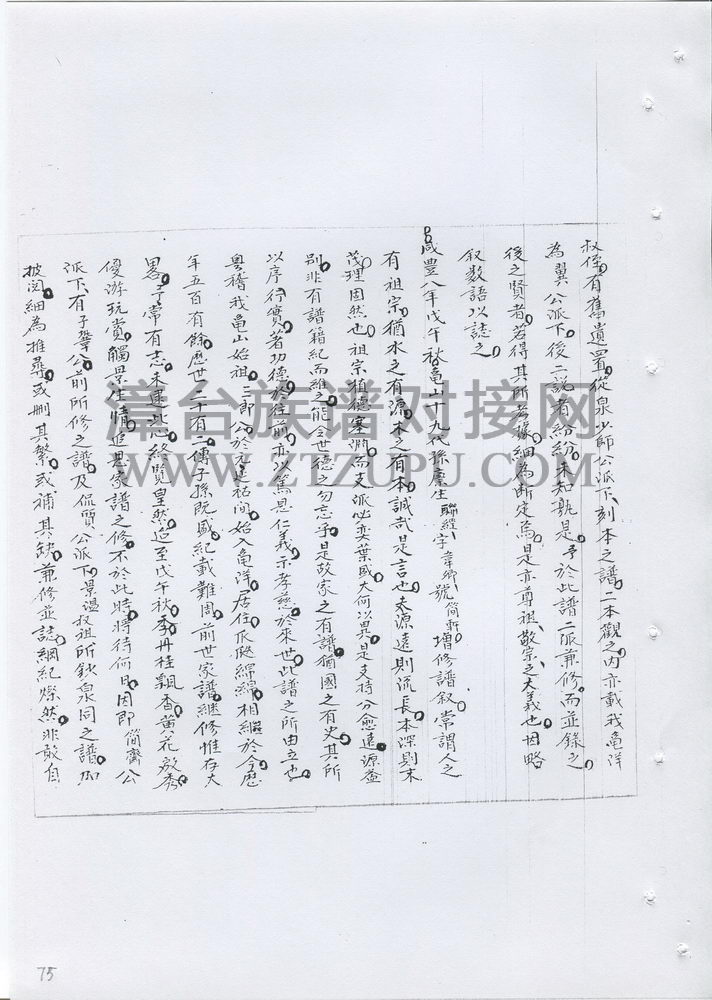 叔侄有舊遺置從泉少師公派下刻本之譜二本觀之內亦載我龜洋
為翼公派下後二說者紛紛未知孰是予於此譜二派兼修而並錄之
後之賢者若得其所考據細為斷定焉是亦尊祖敬宗之大義也因略
叙数語以誌之
咸豊八年戊午秋龜山十九代孫廪生聯經字章鄉號簡斬增修譜叙常謂人之
有祖宗猶水之有源木之有本誠哉是言也夫源遠則流長本深則末
茂理固然也祖宗積德塞淵而支派必奕葉盛大何以異是支持分愈遠源益
別非有譜籍紀而維之能令世德之勿忘乎是故家之有譜猶國之有史其所
以序行實著功德於往前亦以篤恩仁義示孝慈於來世此譜之所由立也
粤稽我龜山始祖二郎公於延祐間始入龜洋居住瓜瓞綿綿相繼於今歷
年五百有餘歷世二十有二傳子孫既盛紀載難周前世家譜継修惟存大
畧予常有志未逮悲終覽皇然迄至戊午秋季丹桂飄香黃花放秀
優游玩賞觸景生情追異家譜之修不於此時將待何日因即簡齋公
派下有子肇公前所修之譜及侃質公派下景温叔祖所鈔泉同之譜加
披閱細為推尋或删其繁或補其缺兼修並誌綱紀燦然非敢自
漳台族谱对接网
WWW.ZTZUPU.COM
75